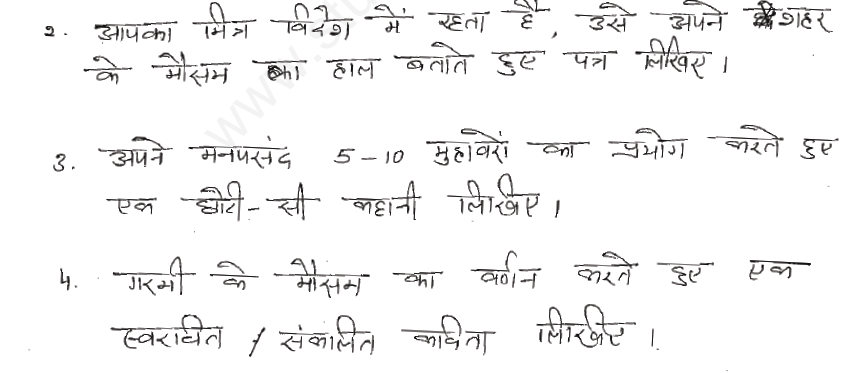 २. आपका मित्र विदेश में रहता है, उसे अपने शहर
के मौसम का हाल बताते हुए पत्र लिखिए।
3. अपने मनपसंद 5-10 मुहावरों का प्रयोग करते हुए
एक छोटी-सी कहानी लिखिए।
4. गरमी के मौसम का वर्णन करते हुए एक
स्वरचित / संकलित कविता लिखिए।